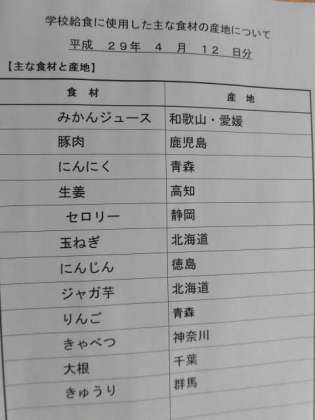 学校給食に使用した主な食材の産地について
平成 29年 4 月 12 日分
【主な食材と産地】
食 材 産 地
みかんジュース 和歌山・愛媛
豚肉 鹿児島
にんにく 青森
生姜 高知
セロリー 静岡
玉ねぎ 北海道
にんじん 徳島
ジャガ芋 北海道
りんご 青森
きゃべつ 神奈川
大根 千葉
きゅうり 群馬